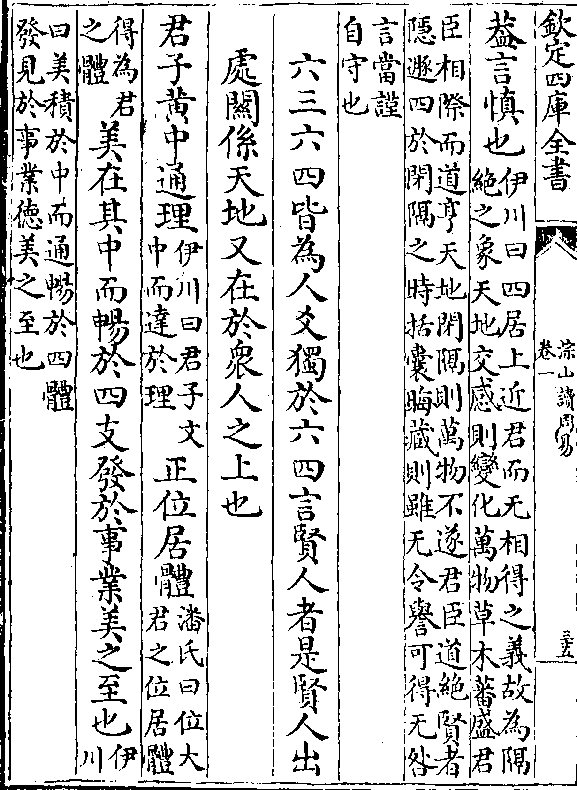 欽定四庫全書
淙山讀周易
卷一
三十五
蓋言慎也伊川曰四居上近君而无相得之義故為隔
絶之象天地交感則變化萬物草木蕃盛君
臣相際而道亨天地閉隔則萬物不遂君臣道絶賢者
隱遯四於閉隔之時括囊晦藏則雖无令譽可得无咎
言當謹
自守也
六三六四皆為人爻獨於六四言賢人者是賢人出
處關係天地又在於衆人之上也
君子黄中通理伊川曰君子文
中而達於理
正位居體潘氏曰位大
君之位居體
得為君
之體
美在其中而暢於四支發於事業美之至也伊
川
曰美積於中而通暢於四體
發見於事業徳美之至也